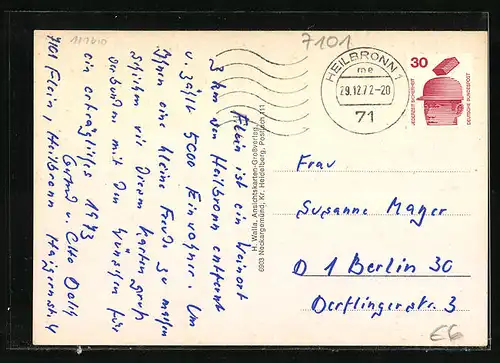 Flein ist ein Weinort
3 km von Heilbronn entfernt
u. zählt 5000 Einwohner. Um
Ihnen eine kleine Freude zu machen
schicken wir diesen Kartengruß
verbunden mit den Wünschen für
ein erträgliches 1973
Gerd u. Otto
7101 Flein, Heilbronn
H. Walla, Ansichtskarten-Großverlag
6903 Neckargemünd, Kr. Heidelberg, Postfach 111
7101
HEILBRONN 1
me
29.12.72-20
71
30
JEDERZEIT SICHERHEIT
DEUTSCHE BUNDESPOST
Frau
Susanne Mayer
D 1 Berlin 30
Derflingerstr. 3
E6